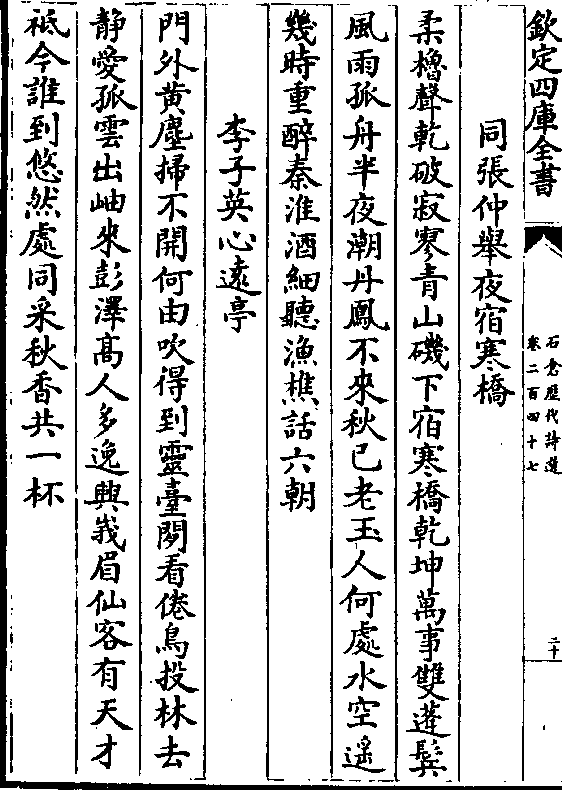 欽定四庫全書
石倉歷代詩選
卷二百四十七
二十
同張仲舉夜宿寒橋
柔櫓聲乾破寂寥青山磯下宿寒橋乾坤萬事雙蓬鬢
風雨孤舟半夜潮丹鳳不來秋已老玉人何處水空遥
幾時重醉秦淮酒細聽漁樵話六朝
李子英心遠亭
門外黄塵掃不開何由吹得到靈臺閒看倦鳥投林去
静愛孤雲出岫來彭澤髙人多逸興峩眉仙客有天才
祗今誰到悠然處同采秋香共一杯